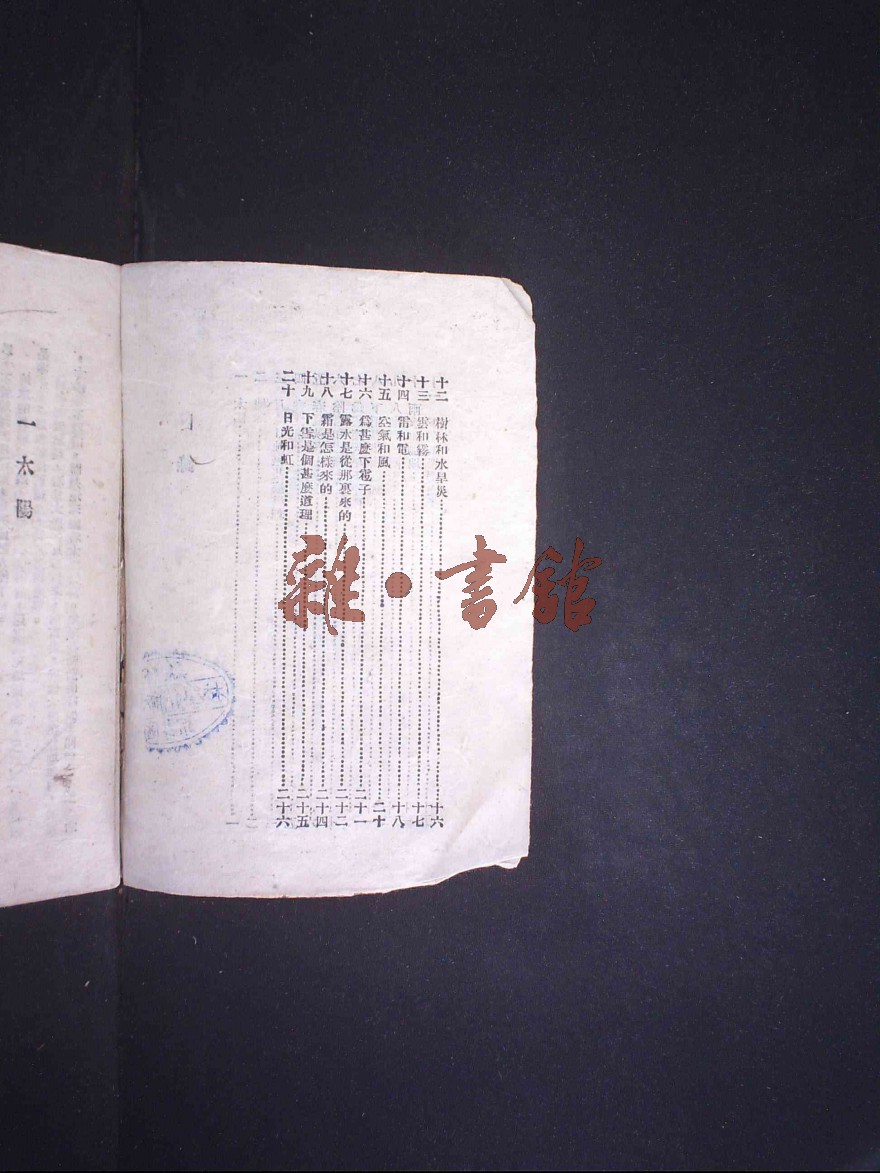 十二 樹林和水旱災………十六
十三 雲和霧………十七
十四 雷和電………十八
十五 空氣和風………二十
十六 爲甚麼下雹子………二十一
十七 露水是從那裏來的………二十二
十八 霜是怎樣來的………二十四
十九 下雪是個甚麼道理………二十五
二十 日光和虹………二十六
一 太陽
雜·書館